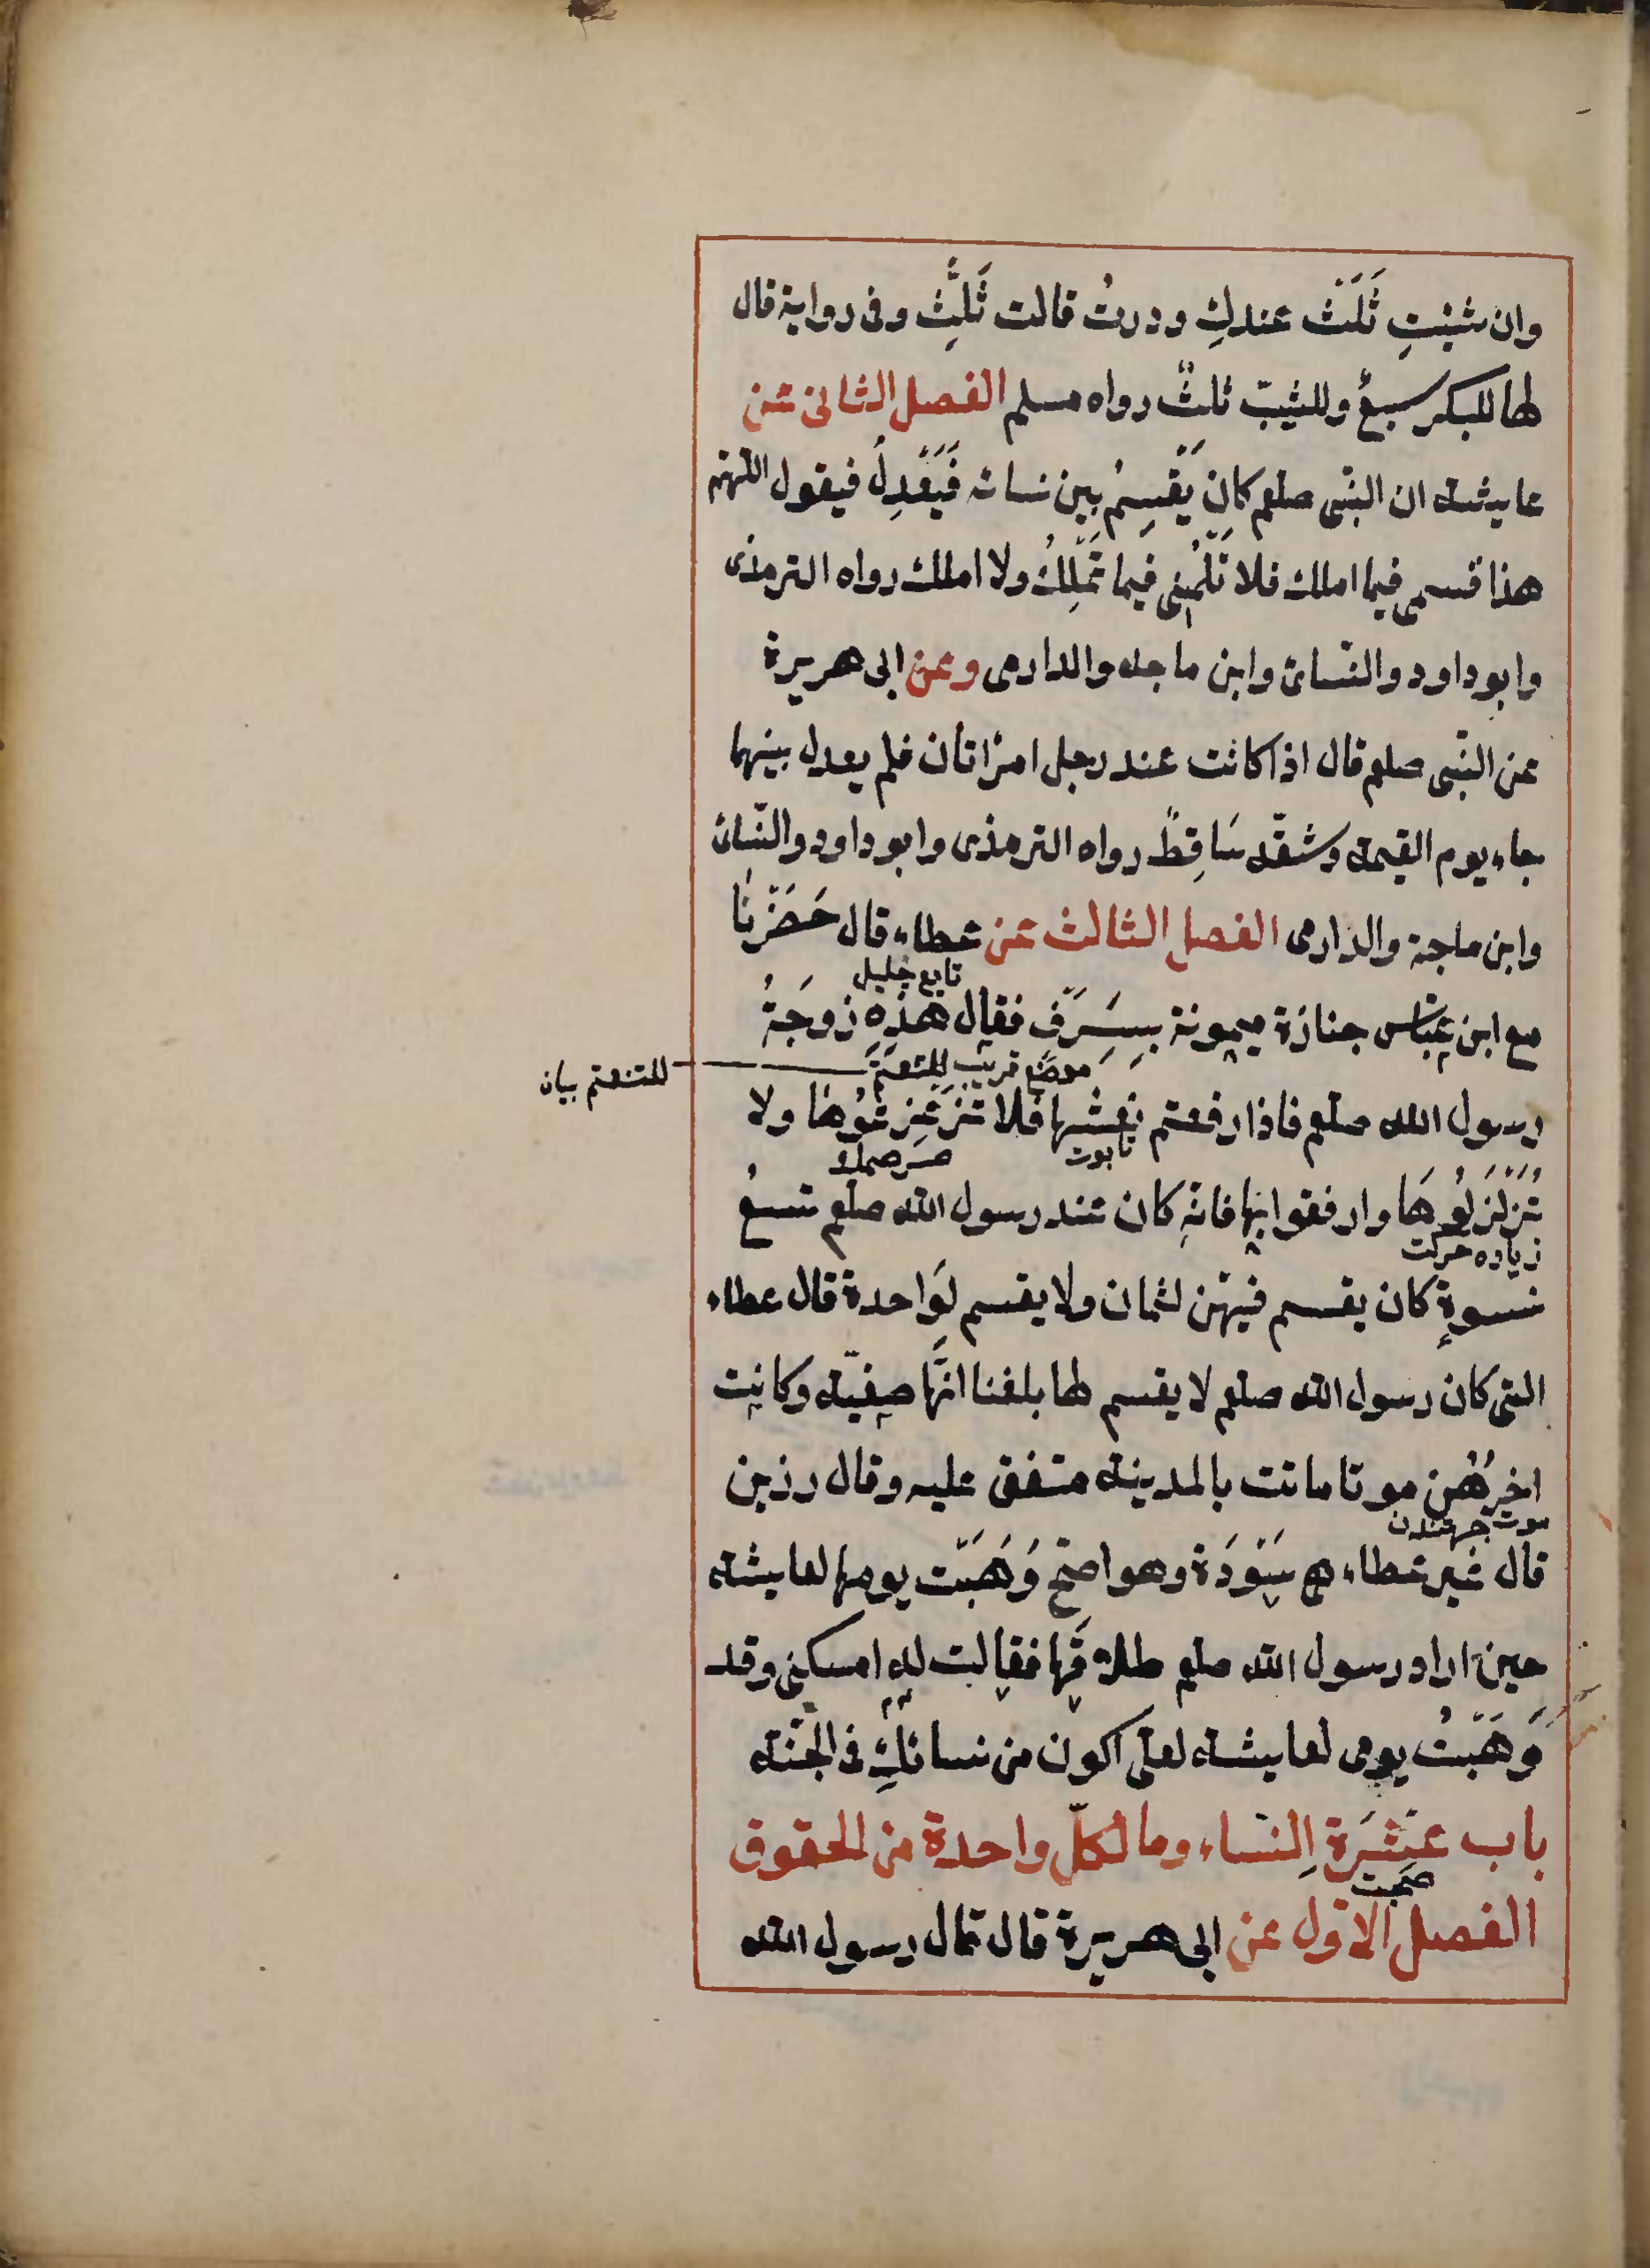 وان شئتِ ثَلَّثْتُ عندكِ ودرتُ قالت ثَلِّثْ وفى رواية قال
لها للبكر سبعٌ وللثيبّ ثلثٌ رواه مسلم الفصل الثانى عن
عايشة ان النبّى صلعم كان يَقْسِمُ بين نسائه فَيَعْدِلُ فيقول اللّهم
هذا قسمى فيما املك فلا تَلُمْنِى فيما تَمْلِكُ ولا املك رواه الترمذى
وابو داود والنّسائ وابن ماجه والدارمى وعن ابى هريرة
عن النّبى صلعم قال اذا كانت عند رجل امرأتان فلم يعدل بينهما
جاء يوم القيمة وشقّه سَاقِطٌ رواه الترمذى وابو داود والنّسائ
وابن ماجة والدارمى الفصل الثالث عن عطاء قال حَضَرْنَا
تابع جليل
مع ابن عبّاس جنازة ميمونة بِسَرَف فقال هذِهِ زَوجَةُ
موضع قريب للتنعيم
للتنعيم بيان
رسول الله صلعم فاذا رفعتم نعشها فلا تزعزعُوهَا ولا
تابوت
تُزَلْزِلُوهَا وارفقوا بها فانّه كان عند رسول الله صلعم تسعُ
زياده حركت
نسوةٍ كان يقسم فيهّن لثمان ولا يقسم لِوَاحدة قال عطاء
التى كان رسول الله صلعم لا يقسم لها بلغنا انّها صفيّة وكانت
اخرُهُن موتا ماتت بالمدينة متفق عليه وقال رزين
موت جهتندن
قال غير عطاء هى سَوْدَة وهو اصحّ وَهَبَت يومها لعايشة
حين اراد رسول الله صلعم طلاقَها فقالت له امسكنى وقد
وَهَبْتُ يومى لعايشة لعلى اكون من نسائكِ فى الجّنة
باب عِشْرَة النّساء وما لكلّ واحدة من الحقوق
صحبت
الفصل الاوّل عن ابى هريرة قال قال رسول الله